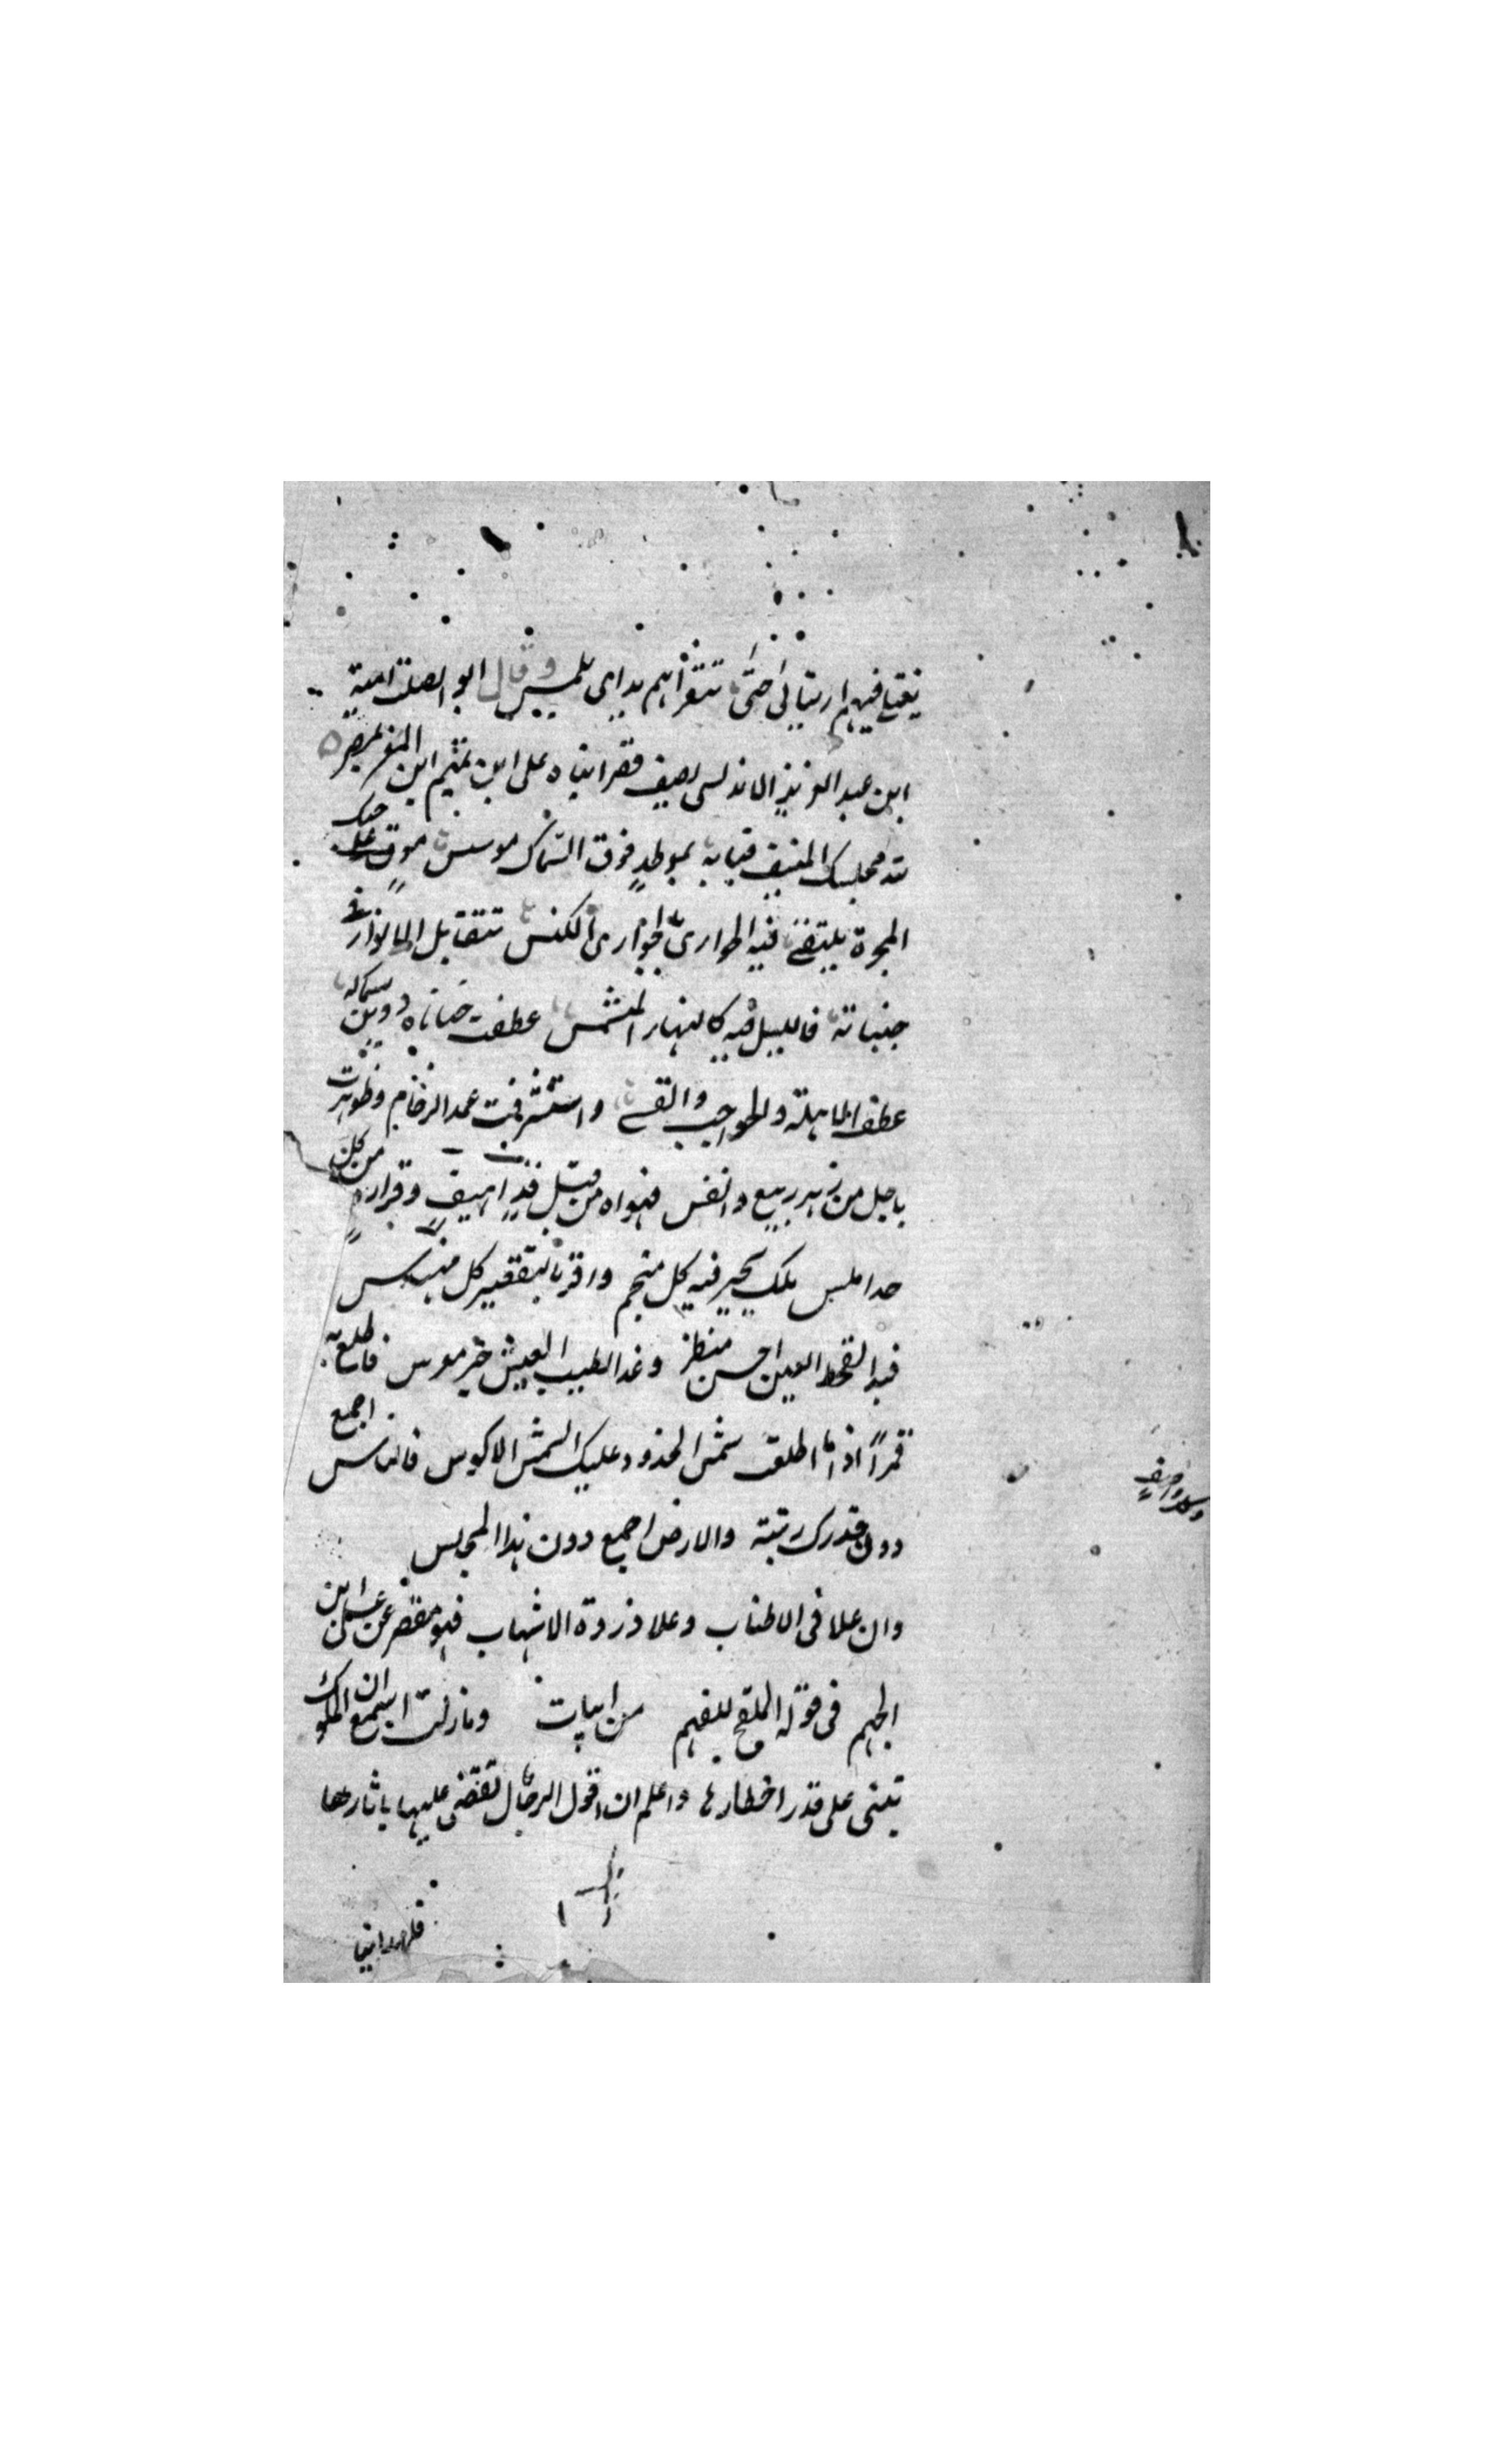 يغتلي فيهم ارتيابي حتى تتقراهم يداي بلمس وقال ابو الصلت امية
ابن عبد العزيز الاندلسي يصف قصرا بناه علي ابن تميم ابن المعز بمصر
لله مجلسك المنيف قبابه بموطد فوق السماك موسس موف على حبك
المجرة يلتقي فيه الجواري بالجواري الكنس تتقابل الانوار في
جنباته فالليل فيه كالنهار المشمس عطفت حناياه دوين سمائه
عطف الاهلة والحواجب والقسي واستشرفت عمد الرخام وظوهرت
باجل من زهر ربيع وانفس فهواه من قبل قد اهيف وقراره من كل
خد املس فلك يحير فيه كل منجم واقر بالتقصير كل مهندس
فبدا للحظ العين احسن منظر وغدا لطيب العيش خير معرس فاطلع به
قمرا اذا ما اطلعت شمس الخدود عليك شمس الاكوس فالناس اجمع
دون قدرك رتبة والارض اجمع دون هذا المجلس
وان علا في الاطناب وعلا ذروة الاشهاب فهو مقصر عن علي ابن
الجهم في قوله الملقح للفهم من ابيات وما زلت اسمع ان الملوك
تبنى على قدر اخطارها واعلم ان عقول الرجال تقضى عليها باثارها